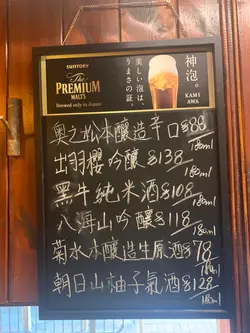 SUNTORY
The
PREMIUM
MALT'S
Brewed only in Japan
美しい泡は、
うまさの証。
神泡。
KAMI
AWA
奥之松本釀造辛口$88
180ml
出羽櫻吟釀$138
180ml
黑牛純米酒$108
180ml
八海山吟釀$118
180ml
菊水本釀造生原酒$78
180ml
朝日山柚子氣酒$128
180ml